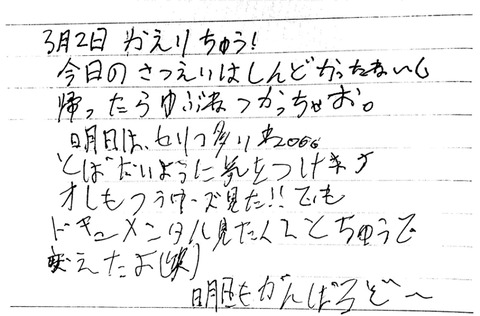 3月2日 かえりちゅう!
今日のさつえいはしんどかったない
帰ったらゆぶねつかっちゃお。
明日は、セリフ多い
とばないように気をつけます
オレもフラワーズ見た!! でも
ドキュメンタル見たくてとちゅうで
変えたよ(笑)
明日もがんばるぞ〜